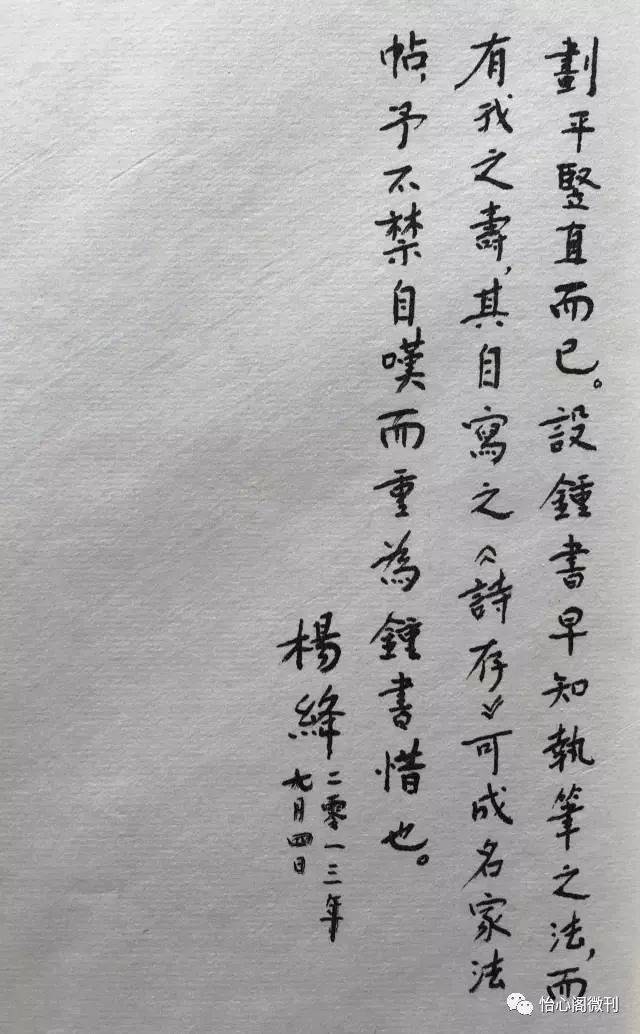 劃平豎直而已。設鍾書早知執筆之法，而
有我之壽，其自寫之《詩存》可成名家法
帖，予不禁自嘆而重為鍾書惜也。
楊絳
二零一三年
九月四日
怡心阁微刊